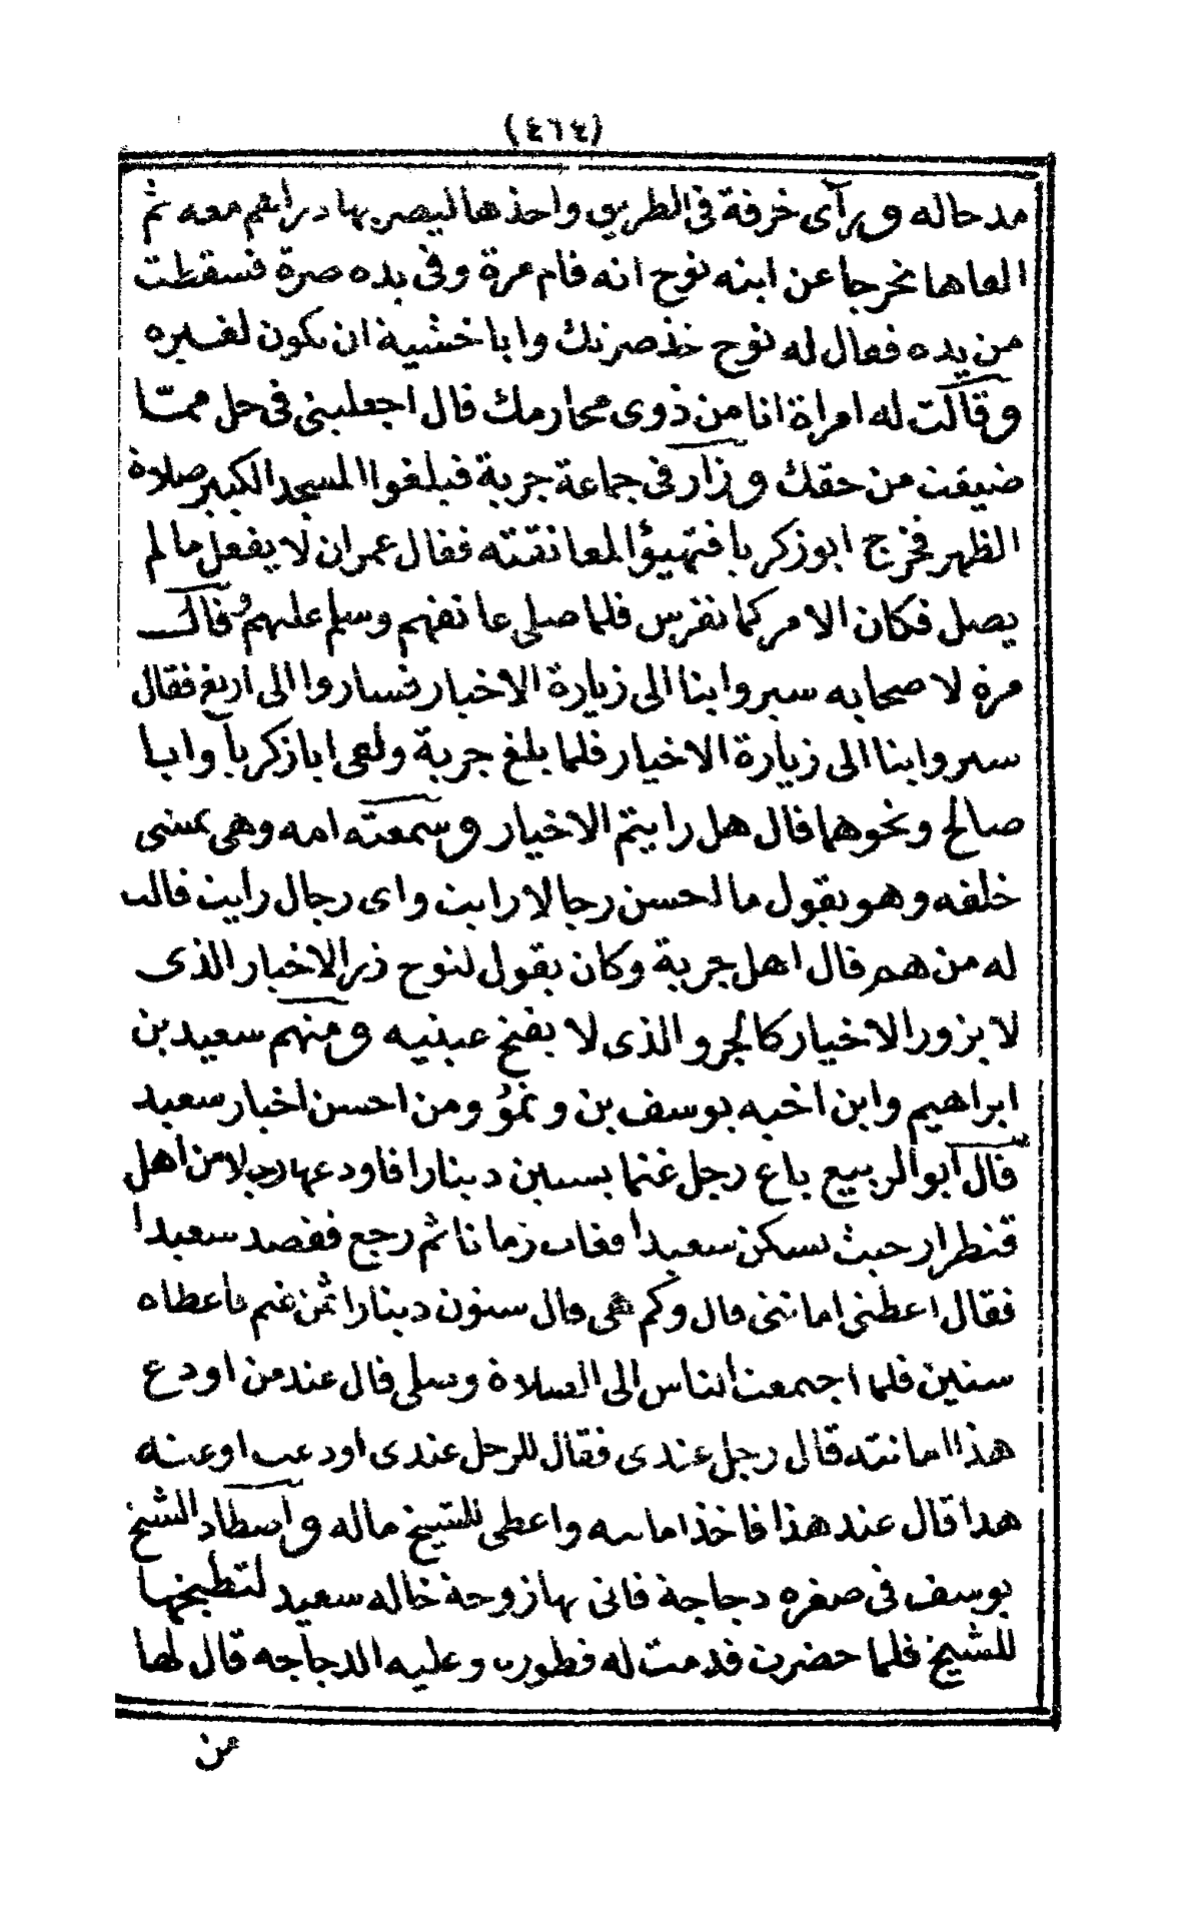 (٤٦٤)
مد حاله ورآى خرقة فى الطريق واخذها ليصر بها دراهم معه ثم
القاها تخرجا عن ابنه نوح انه قام مرة وفى يده صرة فسقطت
من يده فقال له نوح خذ صرتك وابا خشية ان يكون لغيره
وقالت له امراة انا من ذوى محارمك قال اجعلينى فى حل ممّا
ضيقت من حقك وزار فى جماعة جربة فبلغوا المسجد الكبير صلاة
الظهر فخرج ابو زكريا فتهيؤا لمعانقته فقال عمران لا يفعل مالم
يصل فكان الامر كما تفرس فلما صلى عانقهم وسلم عليهم وقال
مرة لاصحابه سيروا بنا الى زيارة الاخيار فساروا الى اريغ فقال
سيروا بنا الى زيارة الاخيار فلما بلغ جربة ولقى ابا زكريا وابا
صالح ونحوهما قال هل رايتم الاخيار وسمعته امه وهى تمشى
خلفه وهو يقول ما احسن رجالا رايت واى رجال رايت قالت
له من هم قال اهل جربة وكان يقول لنوح زر الاخيار الذى
لا يزور الاخيار كالجرو الذى لا يفتح عينيه ومنهم سعيد بن
ابراهيم وابن اخيه يوسف بن ونمؤ ومن احسن اخبار سعيد
قال ابو الربيع باع رجل غنما بستين دينارا فاودعها رجلا من اهل
قنطرار حيث يسكن سعيدا فغاب زمانا ثم رجع فقصد سعيدا
فقال اعطنى امانتى قال وكم هى قال ستون دينارا ثمن غنم فأعطاه
ستين فلما اجتمعت الناس الى الصلاة وصلى قال عند من اودع
هذا امانته قال رجل عندى فقال للرجل عندى اودعت او عنده
هذا قال عند هذا فاخذ امانته واعطى للشيخ ماله واصطاد الشيخ
يوسف فى صغره دجاجة فاتى بها زوجة خاله سعيد لتطبخها
للشيخ فلما حضرت قدمت له فطوره وعليه الدجاجه قال لها
من